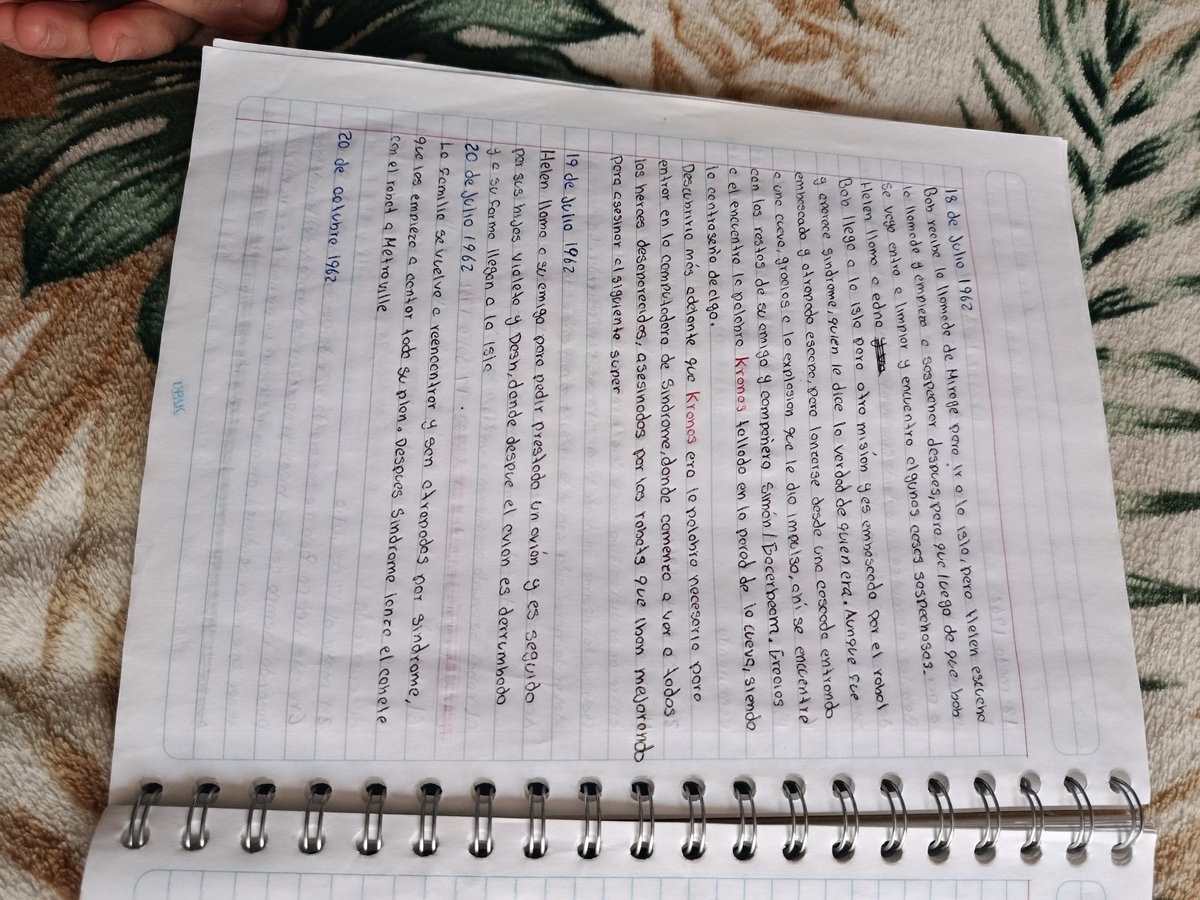 18 de Julio 1962
Bob recibe la llamada de Mirage para ir a la isla, pero Helen escucha
la llamada y empieza a sospechar despues, para que luego de que bob
se vaya entre a limpiar y encuentra algunas cosas sospechosas.
Helen llama a edna
Bob llega a la isla para otra misión y es emboscado por el robot
y aparece sindrome, quien le dice la verdad de quien era. Aunque fue
emboscado y atrapado escapa, para lanzarse desde una cascada entrando
a una cueva, gracias a la explosion que le dio impulso, ahí se encuentra
con los restos de su amigo y compañero Simón / Gacerbeam. Gracias
a el encuentra la palabra Kronos tallado en la pared de la cueva, siendo
la contraseña de algo.
Descubririo más adelante que Kronos era la palabra necesaria para
entrar en la computadora de Sindrome, donde comenzo a ver a todos
los heroes desaparecidos, asesinados por los robots que iban mejorando
para asesinar al siguiente super
19 de Julio 1962
Helen llama a su amiga para pedir prestado un avión y es seguido
por sus hijos Violeta y Dash, donde despue el avion es derrumbado
y a su forma llegan a la isla
20 de Julio 1962
La familia se vuelve a reencontrar y son atrapados por sindrome,
que les empieza a contar todo su plan. Despues Sindrome lanza el cohete
con el robot a Metroville
20 de octubre 1962